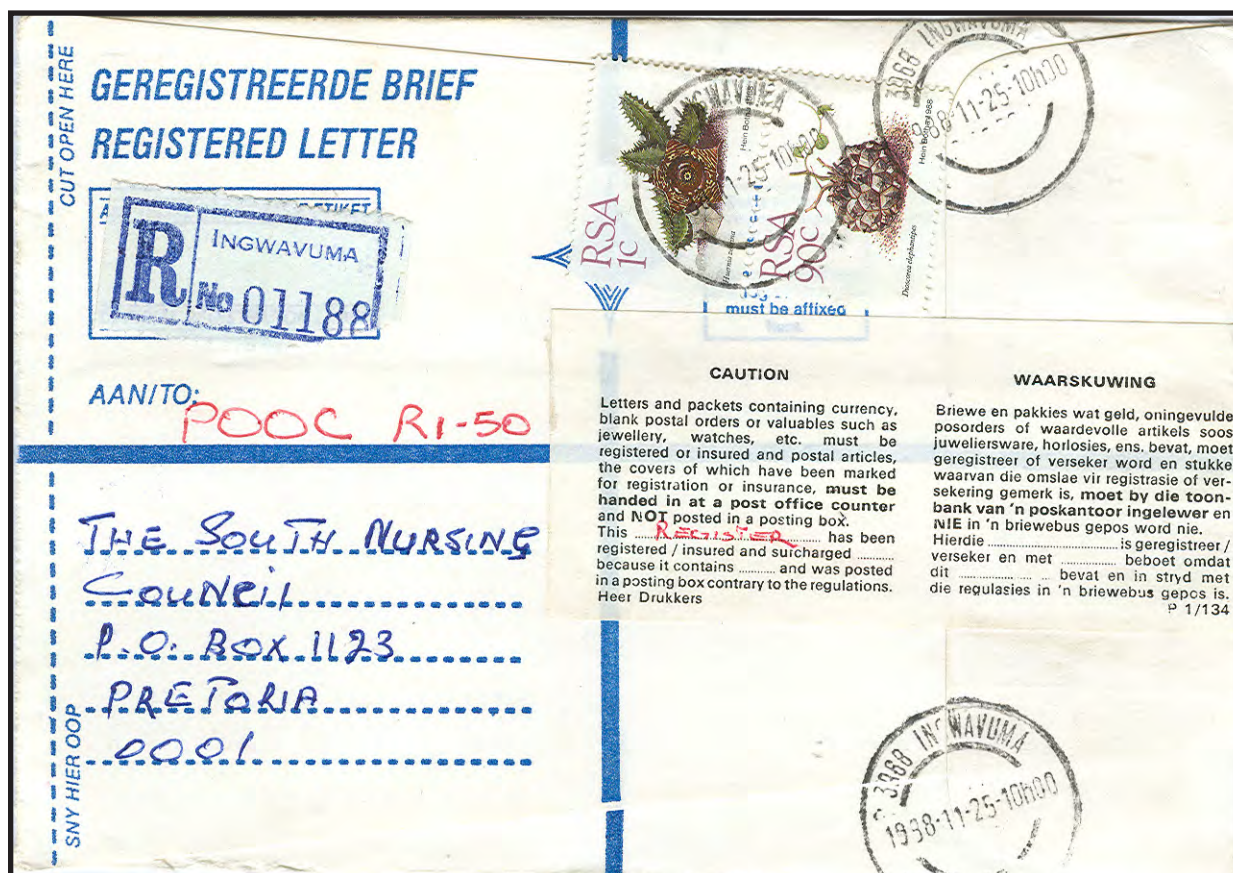 CUT OPEN HERE
GEREGISTREERDE BRIEF
REGISTERED LETTER
R
INGWAVUMA
No 01188
AAN/TO:
POOC R1-50
THE SOUTH NURSING
COUNCIL
P.O. BOX 1123
PRETORIA
0001
SNY HIER OOP
RSA
1c
Hein Botha 1988
RSA
90c
Hein Botha 1988
Dioscorea elephantipes
INGWAVUMA
3968 INGWAVUMA
11-25-10h00
must be affixed
CAUTION
Letters and packets containing currency,
blank postal orders or valuables such as
jewellery, watches, etc. must be
registered or insured and postal articles,
the covers of which have been marked
for registration or insurance, must be
handed in at a post office counter
and NOT posted in a posting box.
This REGISTER has been
registered / insured and surcharged ..........
because it contains .......... and was posted
in a posting box contrary to the regulations.
Heer Drukkers
WAARSKUWING
Briewe en pakkies wat geld, oningevulde
posorders of waardevolle artikels soos
juweliersware, horlosies, ens. bevat, moet
geregistreer of verseker word en stukke
waarvan die omslae vir registrasie of ver-
sekering gemerk is, moet by die toon-
bank van 'n poskantoor ingelewer en
NIE in 'n briewebus gepos word nie.
Hierdie .............................. is geregistreer /
verseker en met ............ beboet omdat
dit .................... bevat en in stryd met
die regulasies in 'n briewebus gepos is.
P 1/134
3968 INGWAVUMA
1988-11-25-10h00